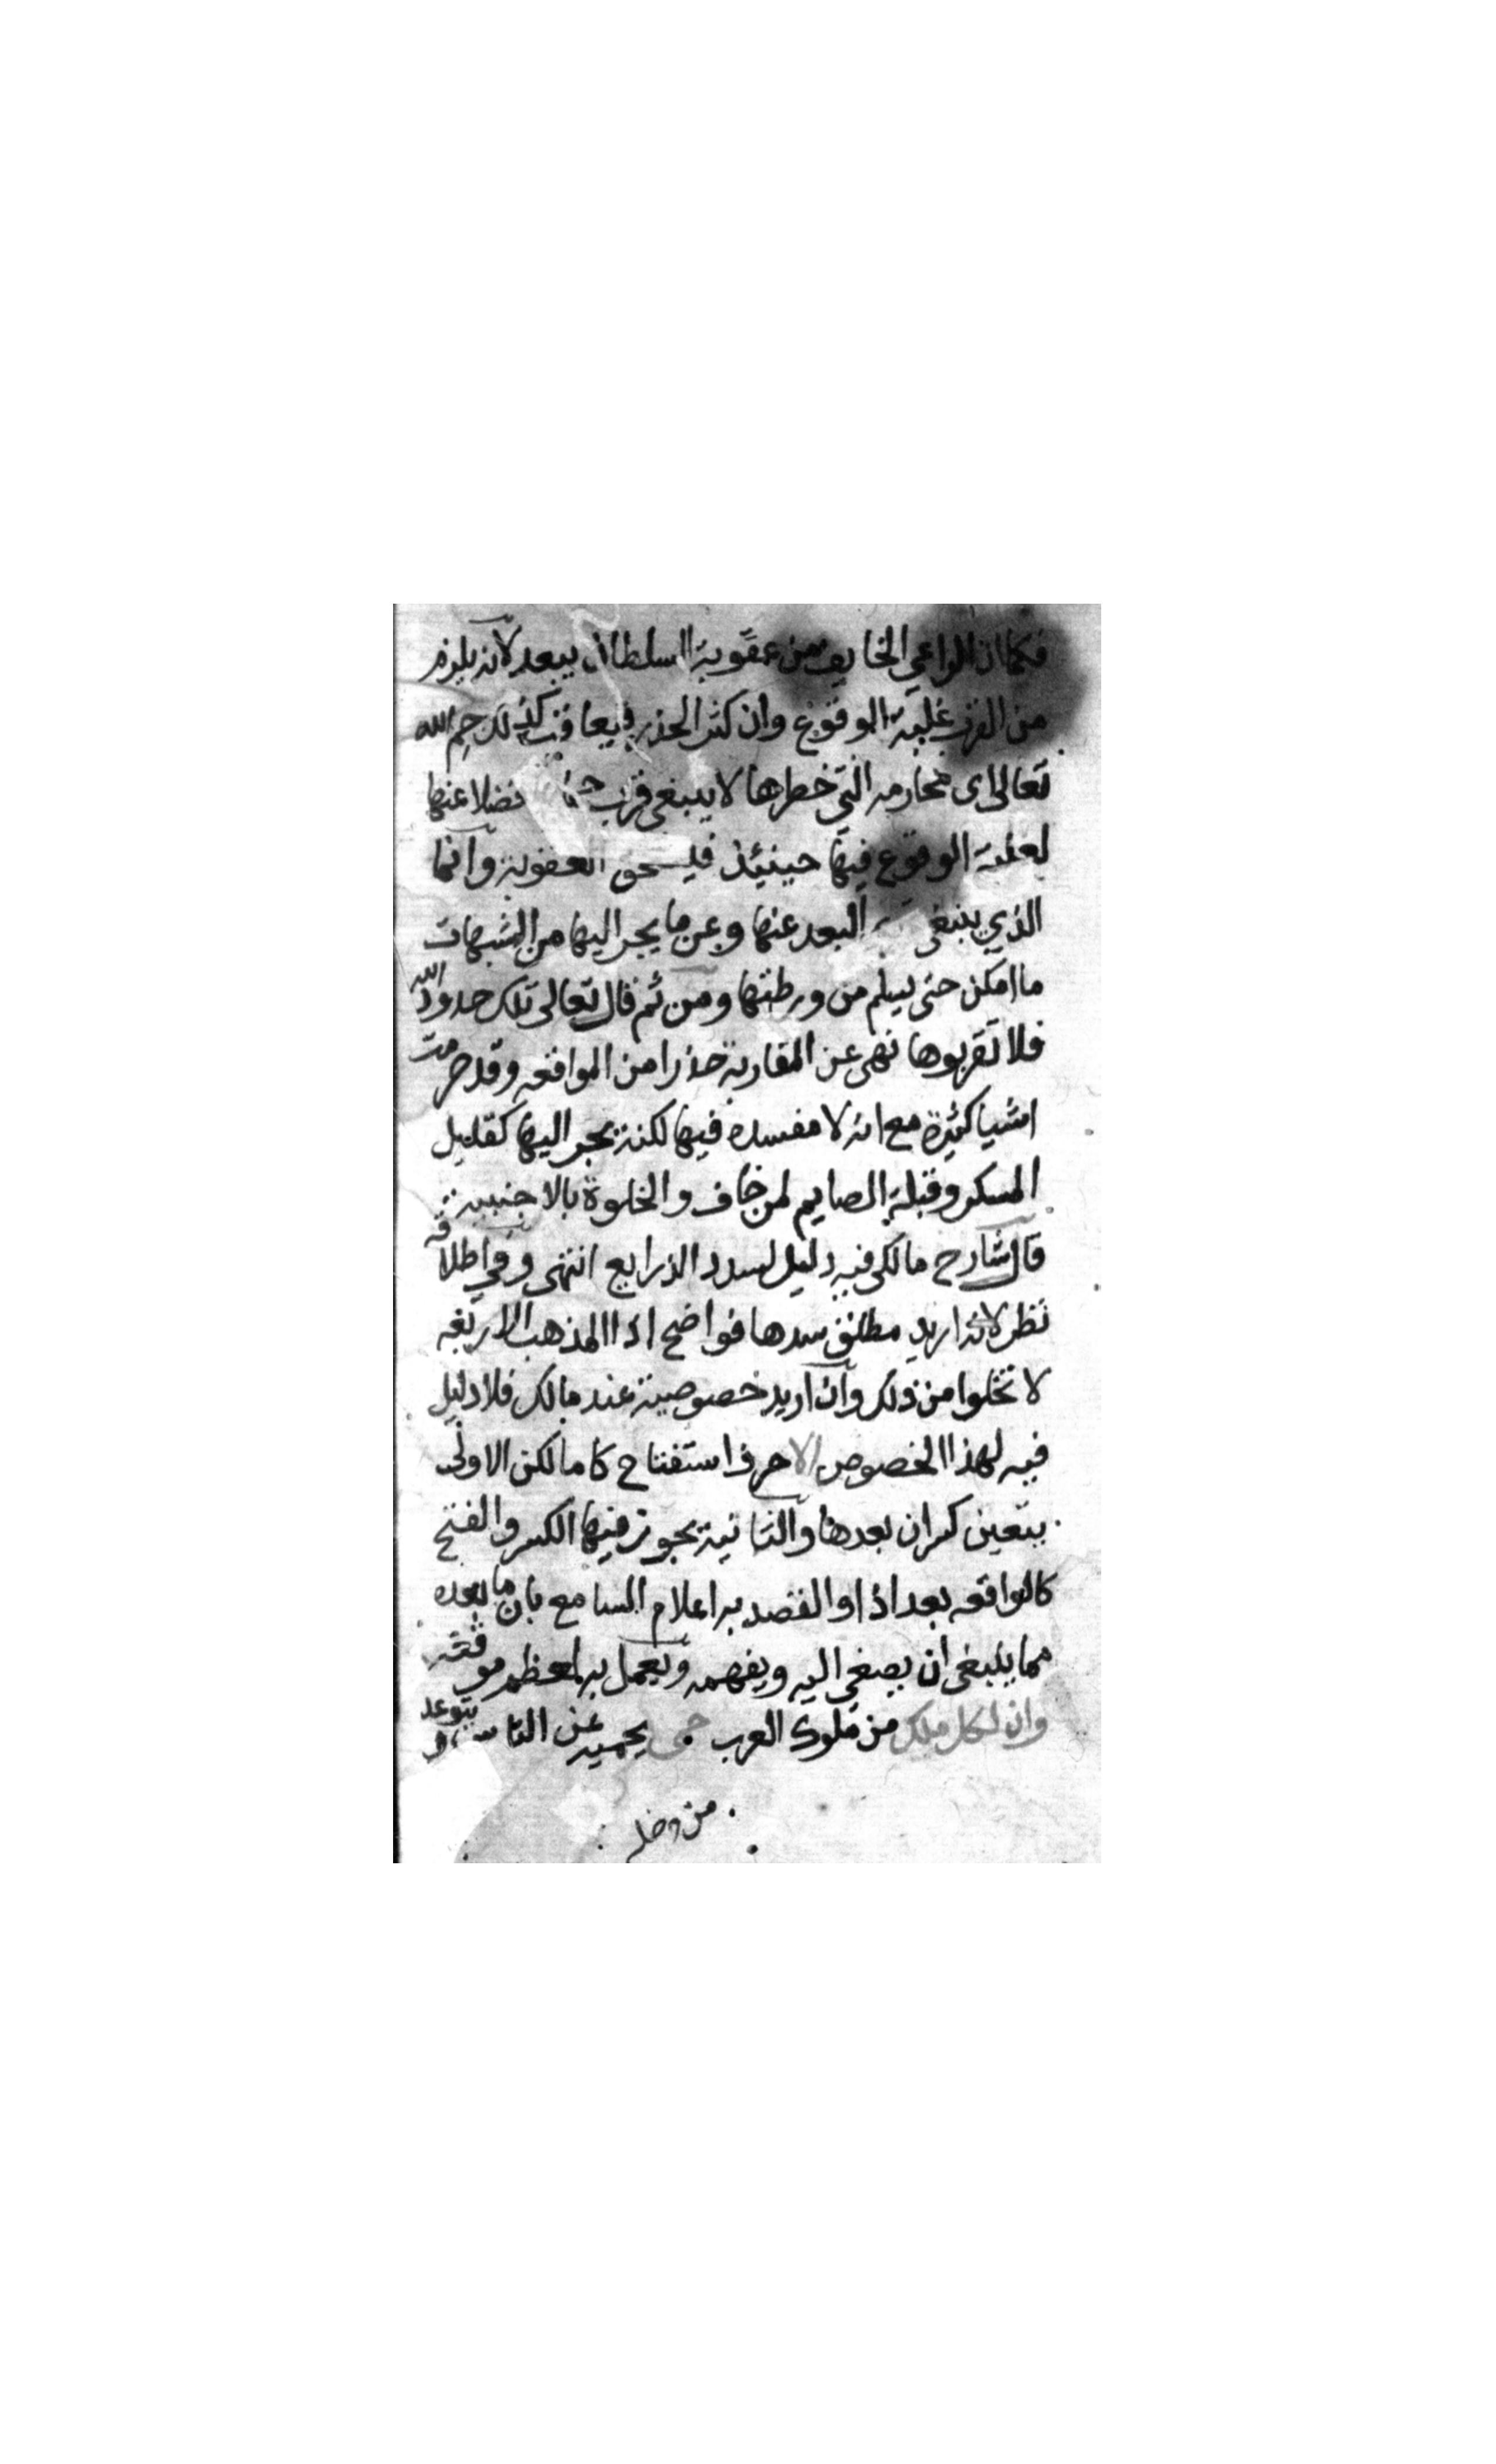 فكما ان الراعي الخايف من عقوبة السلطان يبعد لانه يلزم
من القرب غلبة الوقوع وان كثر الحذر فيعاقب كذلك حمى الله
تعالى اى محارمه التي حظرها لا ينبغى قرب فضلا عنها
لغلبة الوقوع فيها حينئذ فيستحق العقوبة وانما
الذي ينبغي البعد عنها وعن ما يجر اليها من الشبهات
ما امكن حتى يسلم من ورطتها ومن ثم قال تعالى تلك حدود الله
فلا تقربوها نهى عن المقاربة حذرا من المواقعه وقد حرمت
اشيا كثيرة مع انه لا مفسده فيها لكنه يجر اليها كقليل
المسكر وقبلة الصايم لمن خاف والخلوة بالاجنبية
قال شارح مالكى فيه دليل لسدد الذرايع انتهى وفي اطلاقه
نظر لانه اريد مطلق سدها فواضح اذا المذهب الاربعه
لا تخلوا من ذلك وان اريد خصوصية عند مالك فلا دليل
فيه لهذا الخصوص الا حرف استفتاح كاما لكن الاولى
يتعين كسران بعدها والثانية يجوز فيها الكسر والفتح
كالواقعه بعد اذا والقصد به اعلام السامع بان ما بعده
مما ينبغى ان يصغي اليه ويفهمه ويعمل به لعظم موقعه
وان لكل ملك من ملوك العرب حمى يحميه عن الناس ويتوعد
من دخل